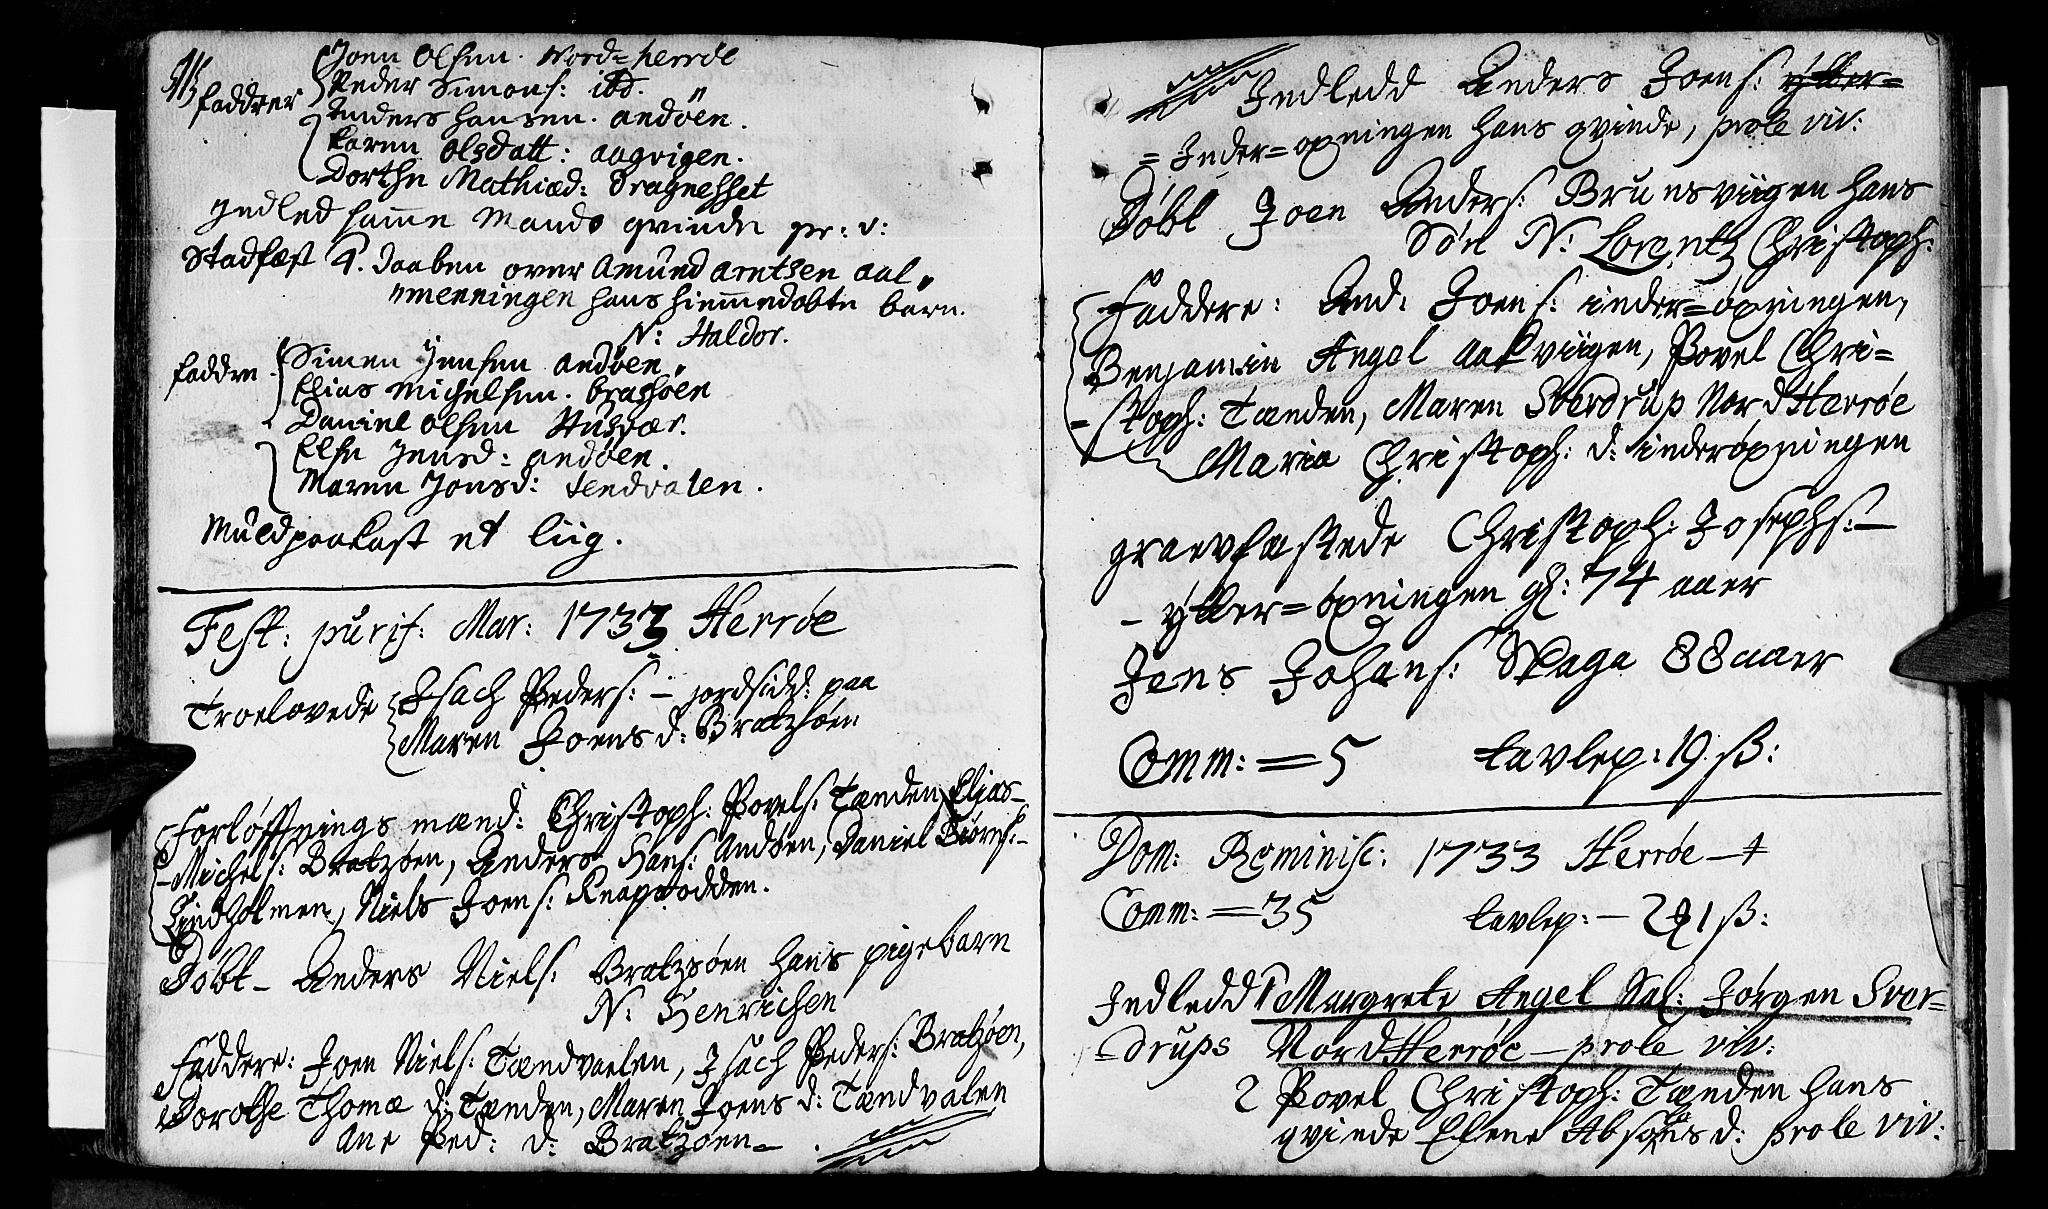 Joen Olsen. Nord=herröe
faddrer Peder Simons: ibd.
Anders hansen. andöen.
Karen Olsdatt: aagvigen.
Dorthe Mathiæd: Dragnesset
Jndled samme Mands qvinde pr: v:
Stadfæst d. daaben over Amund arntsen aal„
„menningen hans hiemmedöbte barn.
N: Haldor.
faddre Simen Jensen andöen„
Elias Michelsen. bratsöen
Daniel Olsen Husvær.
Else Jensd: andöen.
Maren Jonsd: tendvalen.
Muldpaakast et liig.
Fest: purif: Mar: 1733 Herröe
Troelovede Isach Peders: – jordsidd: paa
Maren Joens d: Bratzsöen
Forløftnings mænd: Christoph: Povels: Tænden, Elias–
–Michels: Bratzøen, Anders Hans: Andøen, Daniel Biörns:–
Lindholmen, Niels Joens: Knaptodden.
Döbt– Anders Niels: Bratzsöen hans pigebarn
N: Henrichen
Faddere: Joen Niels: Tændvaelen, Isach Peders: Bratzöen,
Dorothe Thomæ d: Tænden, Maren Joens d: Tændvalen
Ane Ped: d: Bratzöen– .
Jndledd Anders Joens: ytter=
=Jnder=øxningen hans qvinde, prole viv:
Döbt Joen Anders: Brunsviigen hans
Sön N: Lorentz Christoph:
Faddere: And: Joens: inder=øxningen,
Benjamin Angel Aakviigen, Povel Chri=
=stoph: Tænden, Maren Sverdrup Nord Herröe
Maria Christoph: d: inderøxningen
graevfæstede Christoph: Josephs:–
–ytter=øxningen gl: 74 aaer
Jens Johans: Skaga 88 aaer
Comm: = 5 tavlep: 19. ß:
Dom: Reminisc: 1733 Herröe–
Comm: = 35 tavlep:– 1 ß:
Jndledd 1 Margrete Angel Sal: Jörgen Sver=
=drups Nord Herröe – prole viv:
2 Povel Christoph: Tænden hans
qvinde Elene d: prole viv: